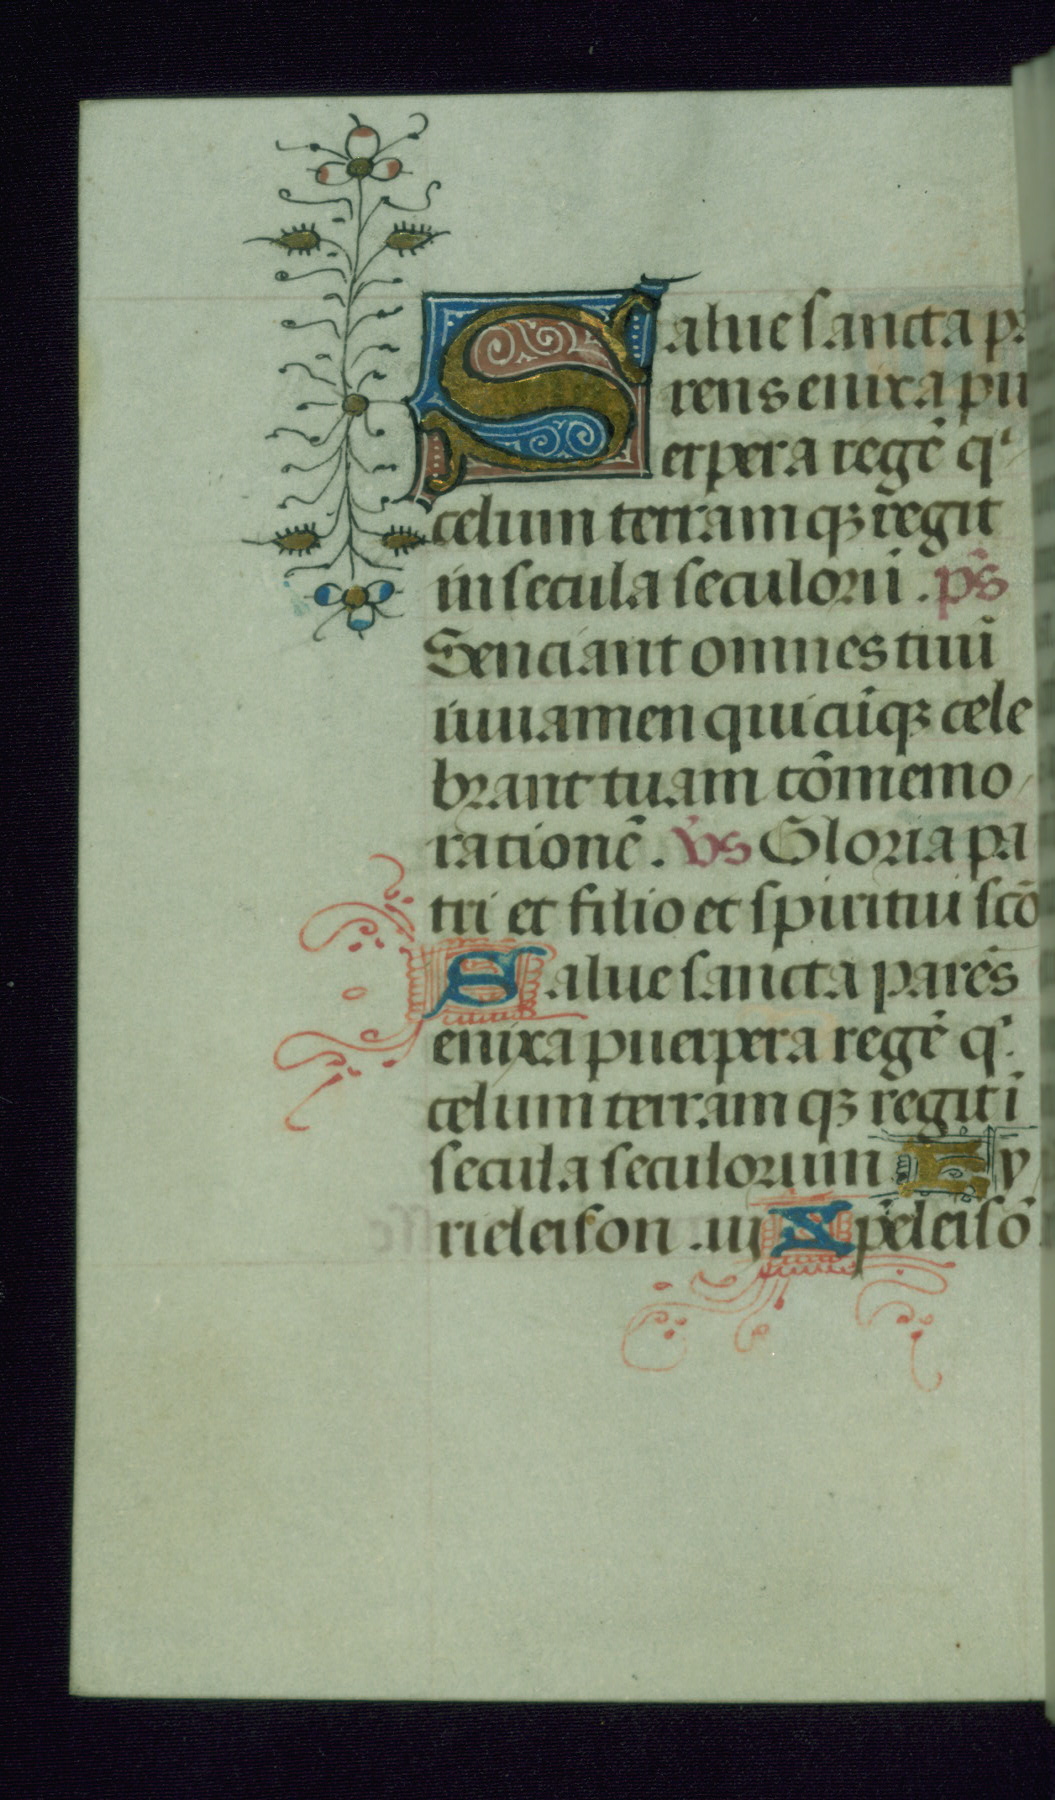 Salue sancta pa
rens enixa pu
erpera regē qⁱ
celum terramqꝫ regit
in secula seculorū . p̄s
Senciant omnes tuū
iuuamen quicūqꝫ cele
brant tuam cōmemo
rationē . v̄s Gloria pa
tri et filio et spiritui scō
Salue sancta parēs
enixa puerpera regē qⁱ
celum terramqꝫ regit ī
secula seculorum Ky
rieleison .iij Xp̄eleisō